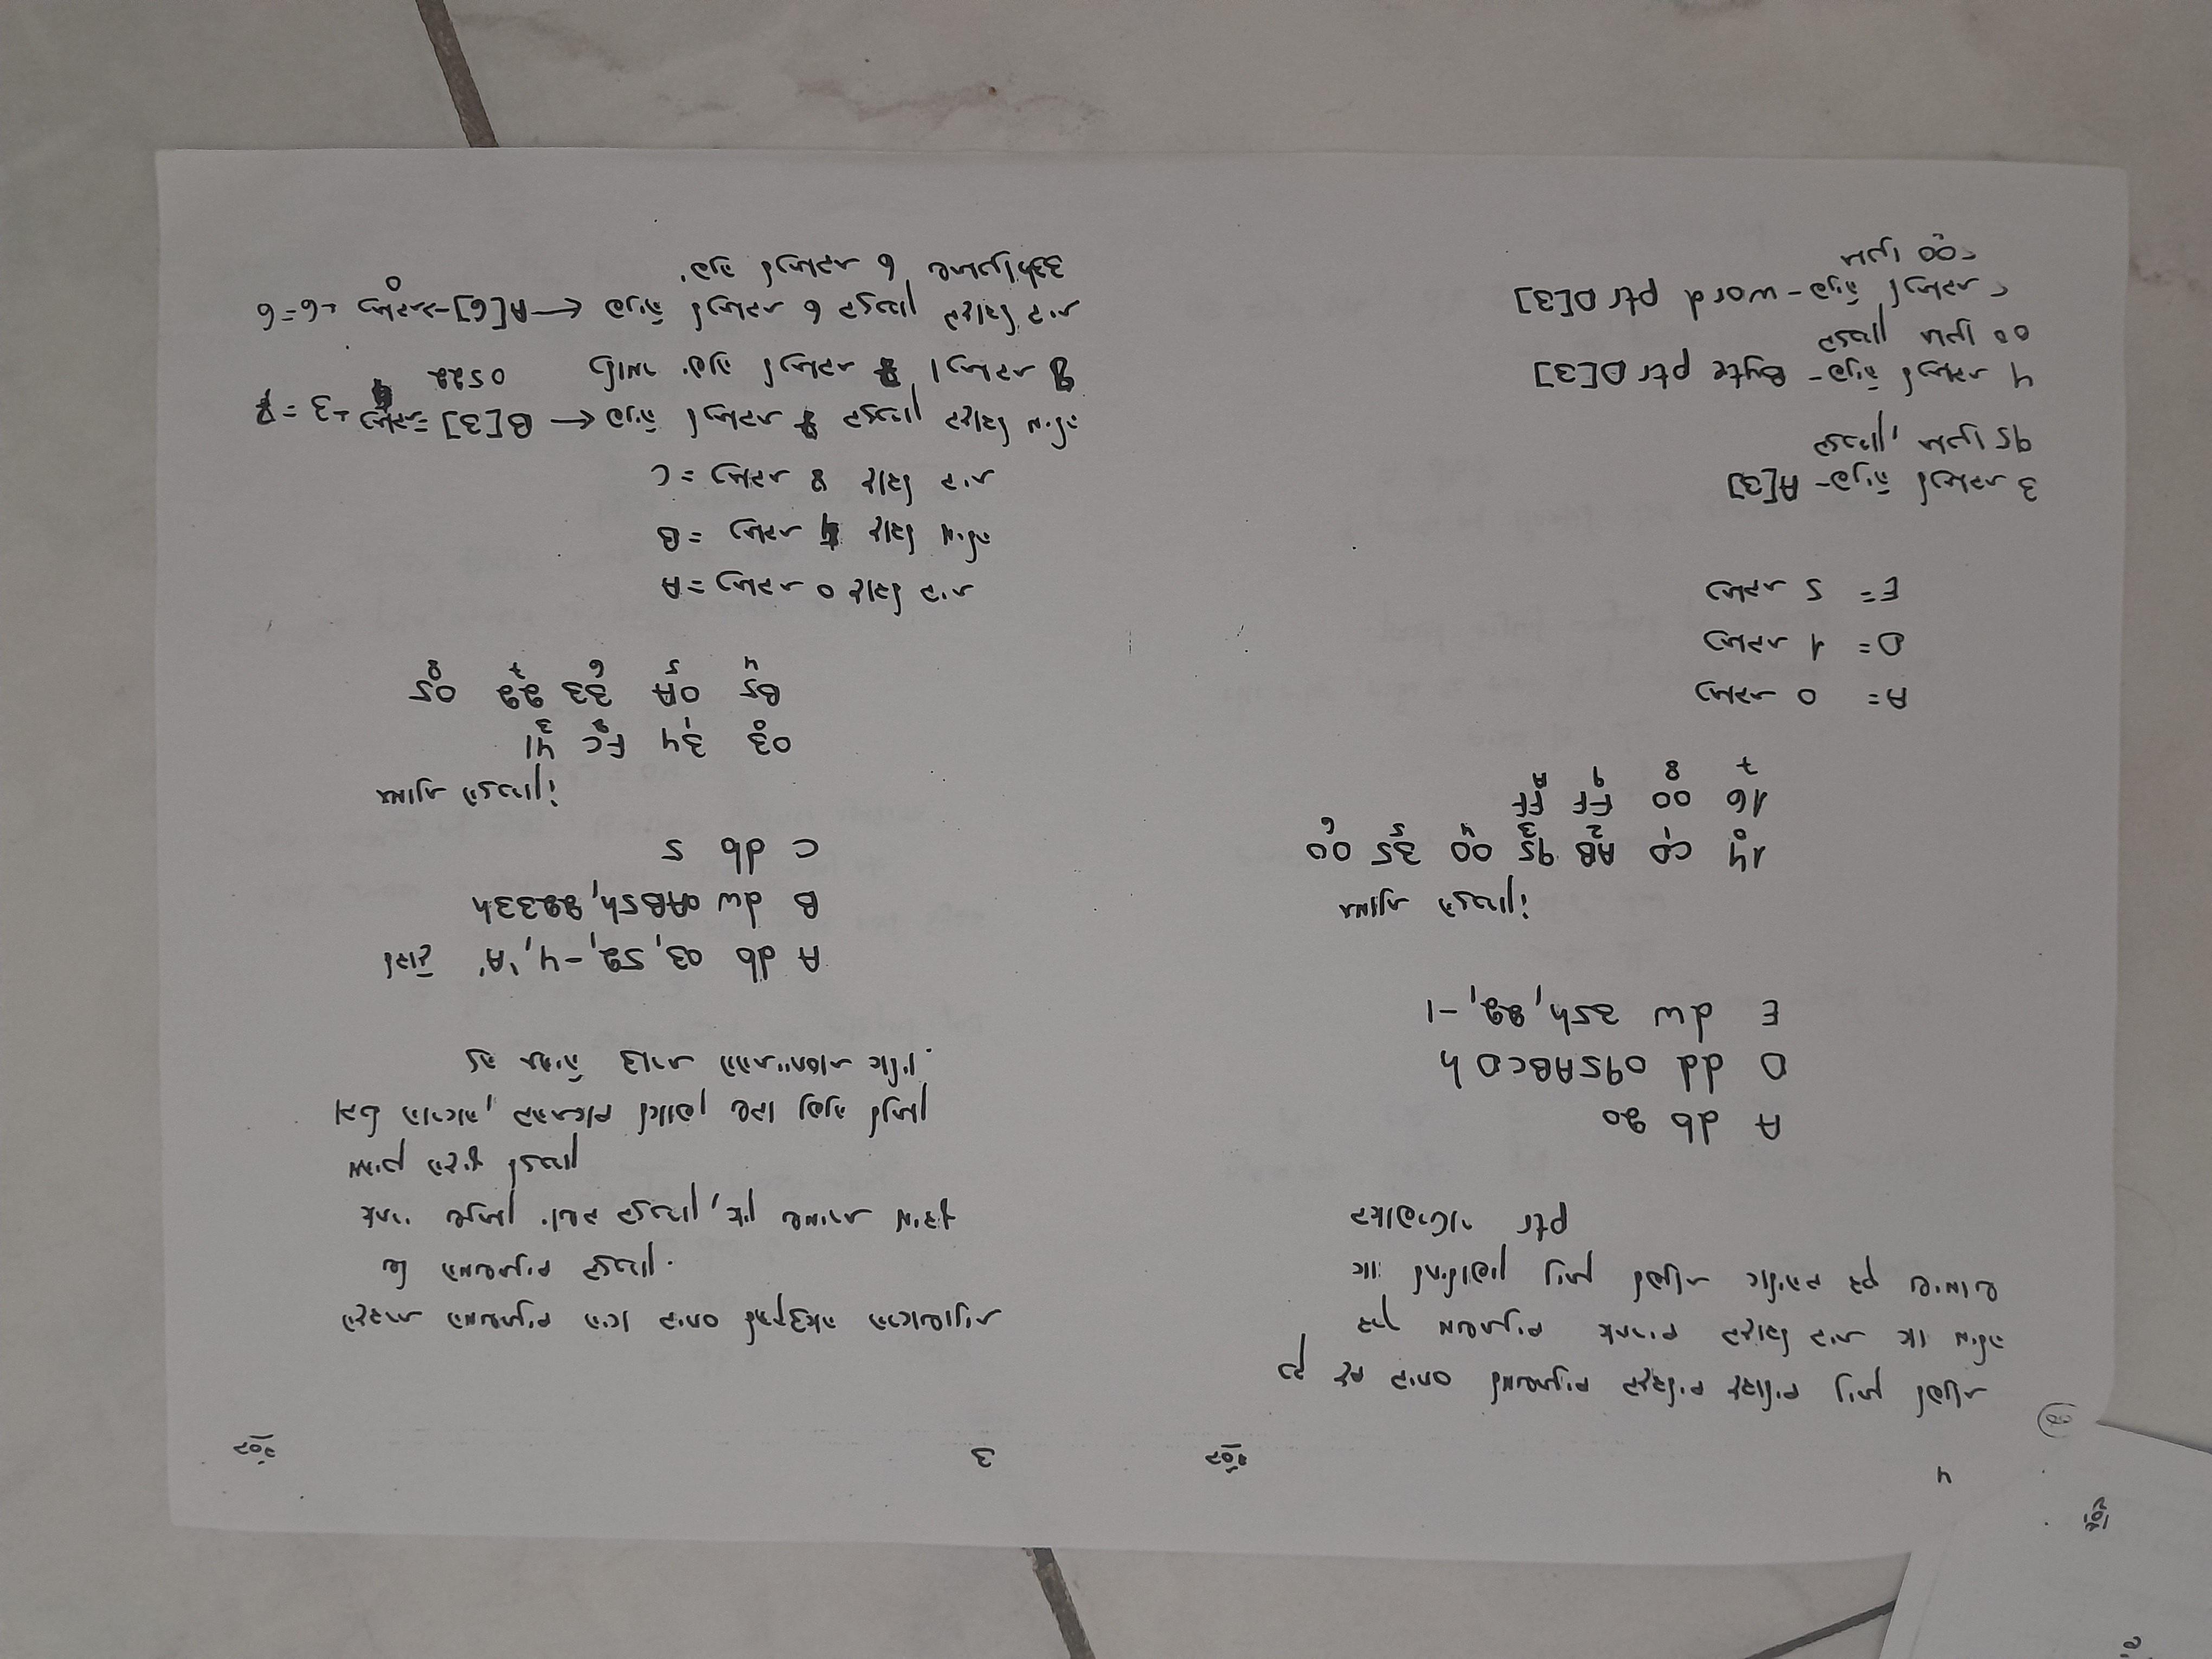 בס"ד
3
הגדרת המשתנים היא ביחס להקצאה הראשונית
של המשתנים בזכרון.
אחרי שנתון יושב בזכרון, אין שמירת מידע
מהיכן הגיע לזכרון
ובכל הוראה, בהתאם לאופן שבו נפנה לנתון
זה תהיה צורת ההתייחסות אליו.
לדוג' A db 03, 52, -4, 'A'
B dw 0AB5h, 2233h
C db 5
תמונת הזכרון:
03 34 FC 41
0 1 2 3
B5 0A 33 22 05
4 5 6 7 8
A = כתובת 0 גודל בית
B = כתובת 4 גודל מילה
C = כתובת 8 גודל בית
B[3] = כתובת +3 = 7 ← פניה לכתובת 7 בזכרון בגודל מילה
4
0522 כלומר יפנה לכתובת 7 וכתובת 8
A[6]- כתובת +6=6 ← פניה לכתובת 6 בזכרון בגודל בית
0
יפנה לכתובת 6 שתוכנו 33h
בס"ד
4
כך גם ביחס למשתנים בגדלים גדולים ניתן לפנות
דרך משתנים אחרים בגודל בית או מילה
או לחילופין ניתן לפנות אליהם דרך שימוש
באופרטור ptr
A db 20
D dd 095ABCDh
E dw 35h, 22, -1
תמונת הזכרון:
14 CD AB 95 00 35 00
0 1 2 3 4 5 6
16 00 FF FF
7 8 9 A
A= כתובת 0
D= כתובת 1
E= כתובת 5
A[3] - פניה לכתובת 3
בזכרון, תוכנו 95
Byte ptr D[3] - פניה לכתובת 4
בזכרון תוכנו 00
word ptr D[3] - פניה לכתובת
תוכנו 00